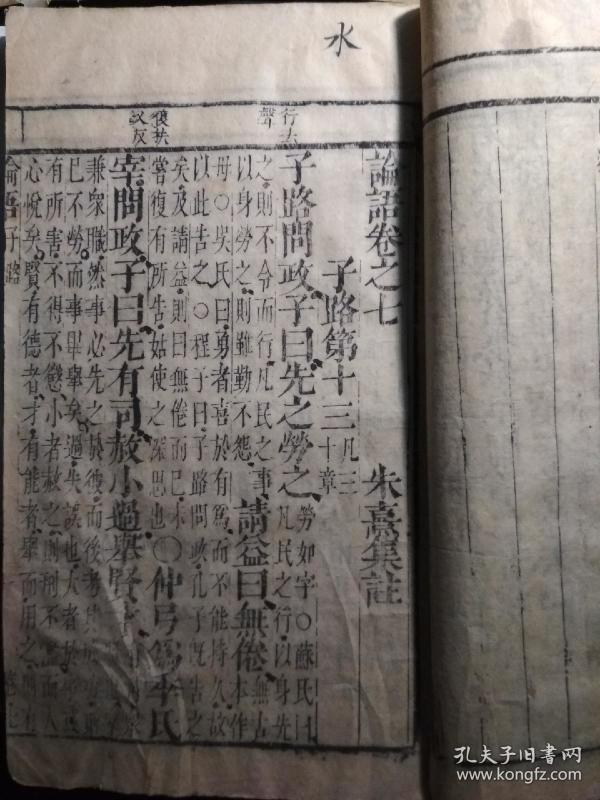 水
行去聲
復扶又反
論語卷之七
朱熹集註
子路第十三
凡三十章
子路問政子曰先之勞之
勞如字○蘇氏曰
凡民之行以身先
之則不令而行凡民之事
以身勞之則雖勤不怨
請益曰無倦
無古
本作
毋○吳氏曰勇者喜於有爲而不能持久故
以此告之○程子曰子路問政孔子旣告之
矣及請益則曰無倦而已未
嘗復有所告姑使之深思也
○仲弓爲季氏
宰問政子曰先有司赦小過舉賢才
兼衆職然事必先之於彼而後考其
己不勞而事畢舉矣過失誤也大者於
有所害不得不懲小者赦之則刑不濫而人
心悅矣賢有德者才有能者舉而用之則
論語子路
孔夫子旧书网
www.kongfz.com